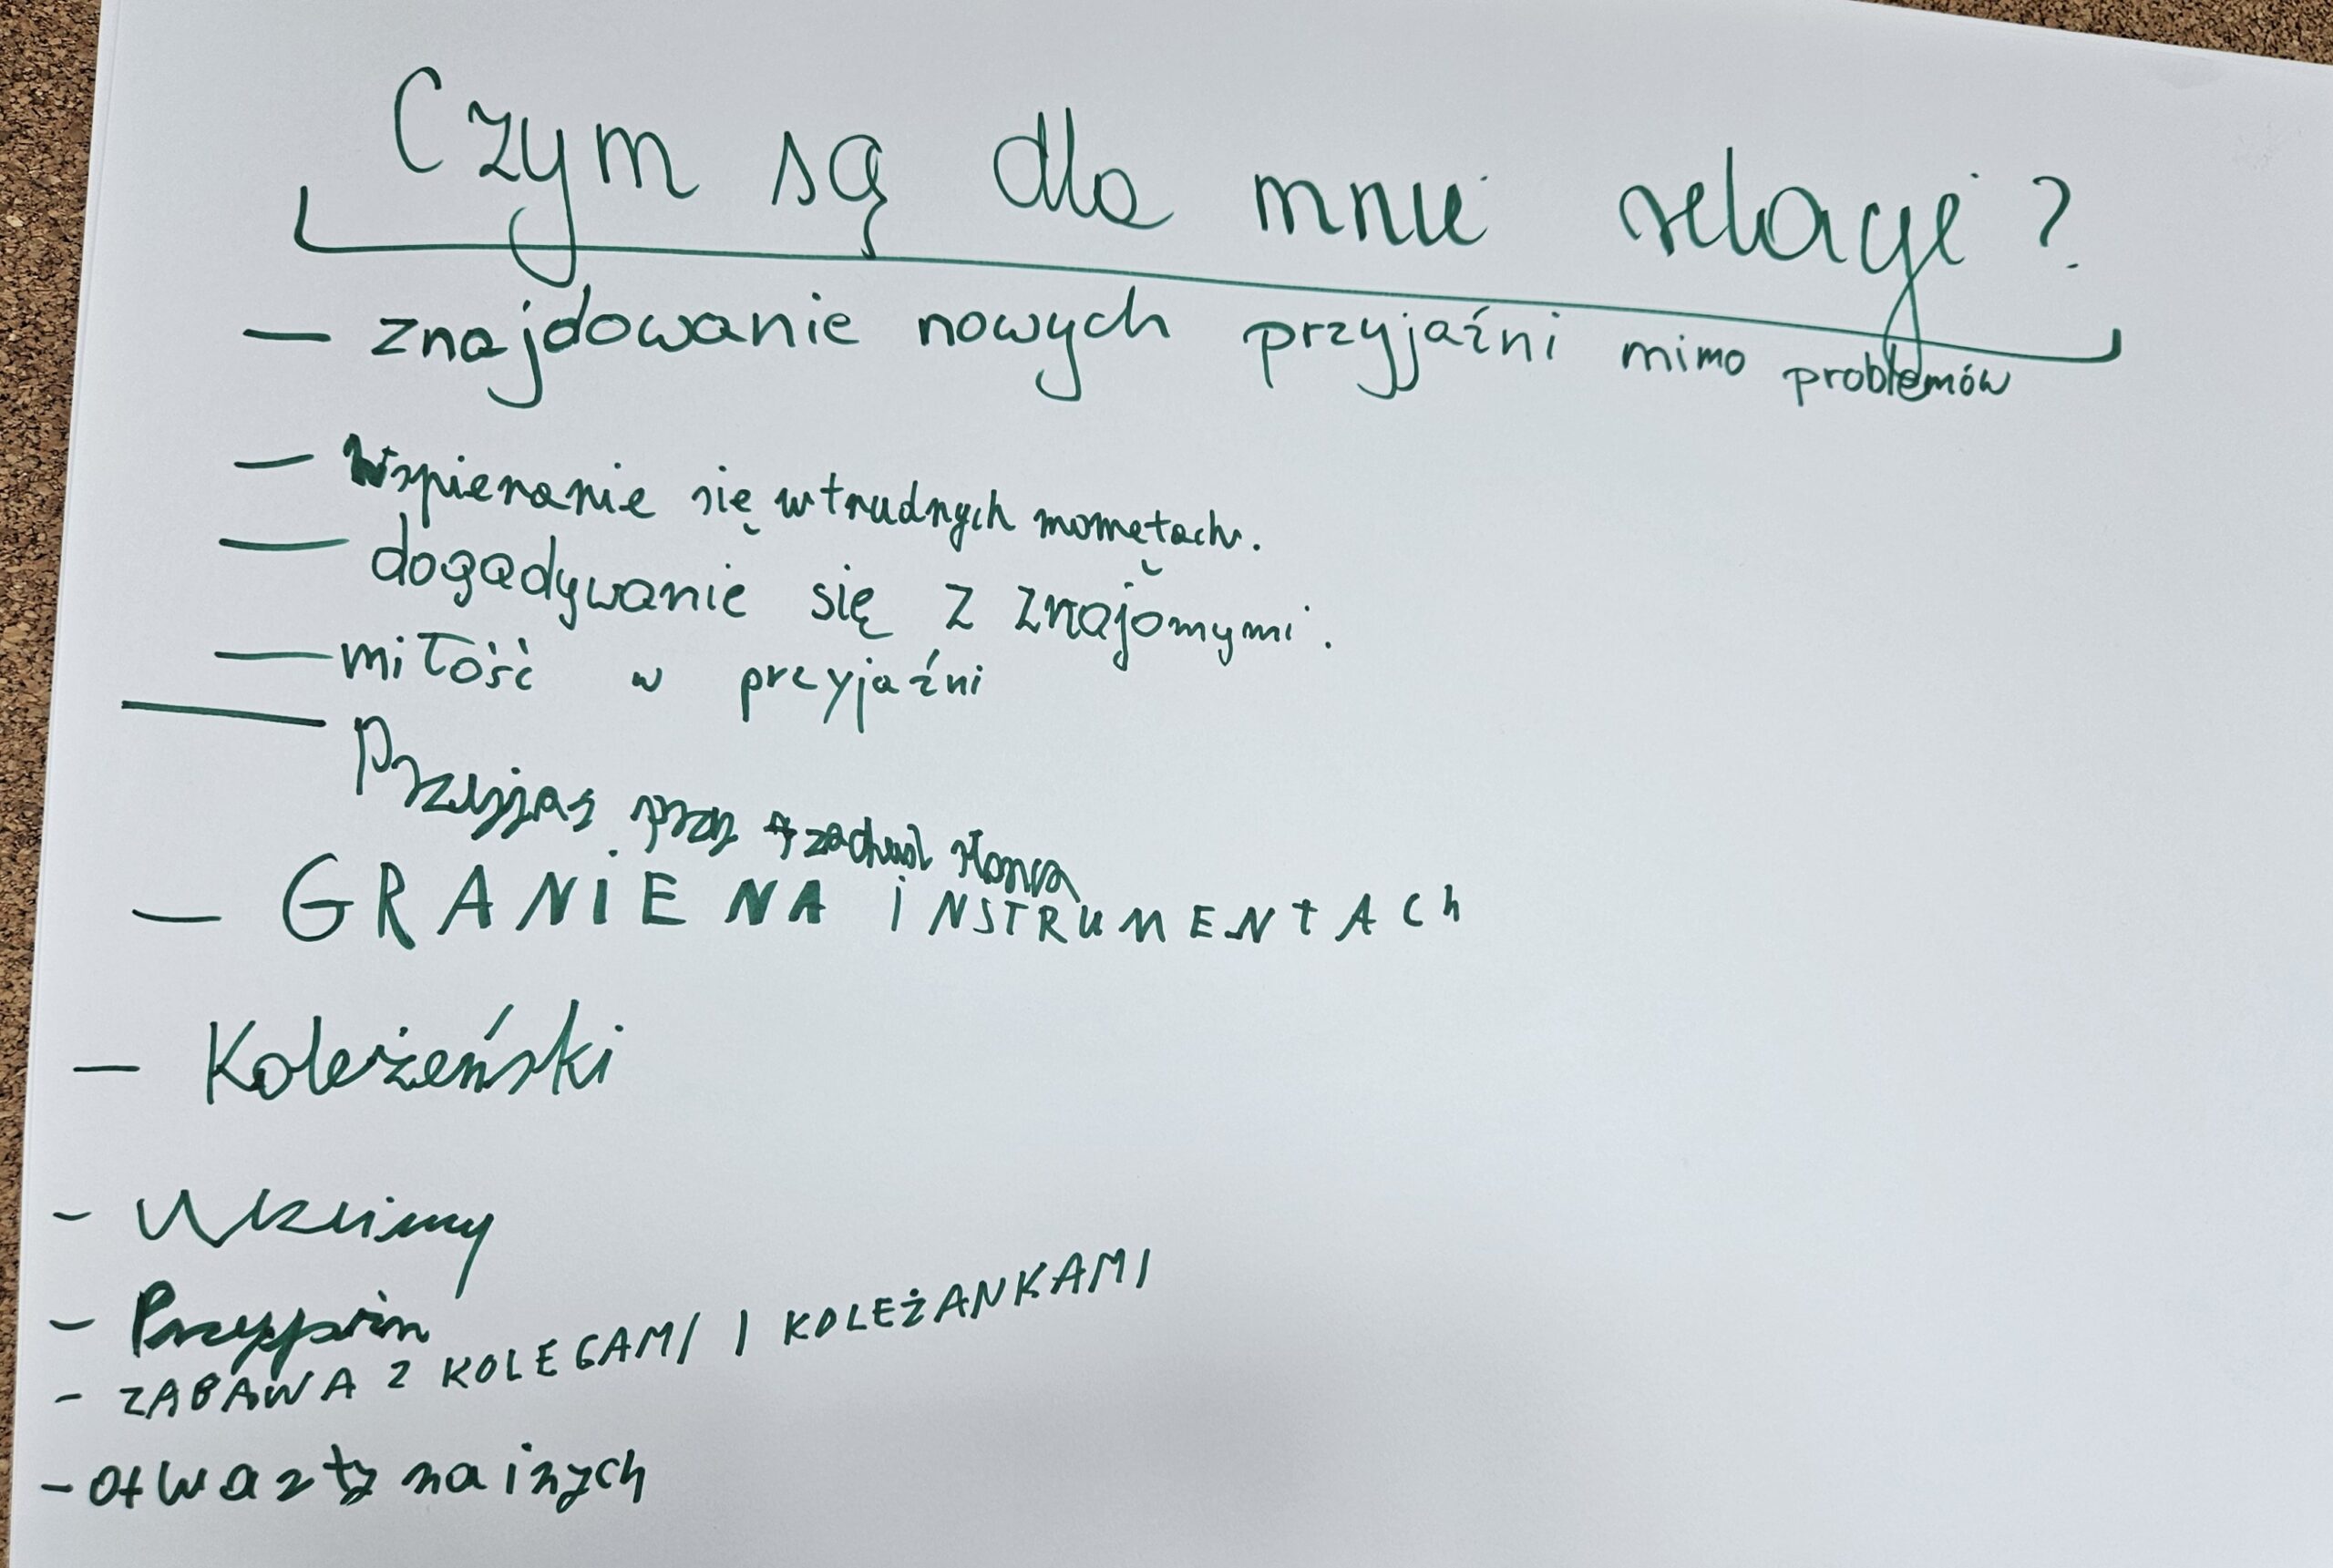 Czym są dla mnie relacje?
— znajdowanie nowych przyjaźni mimo problemów
— Wspieranie się w trudnych mometach.
— dogadywanie się z znajomymi.
— miłość w przyjaźni
— Przyjaś przy zachud słonca
— GRANIE NA iNSTRUMENtACh
— Koleżeński
- ZABAWA Z KOLEGAMI I KOLEŻANKAMI
- otwarty na inych